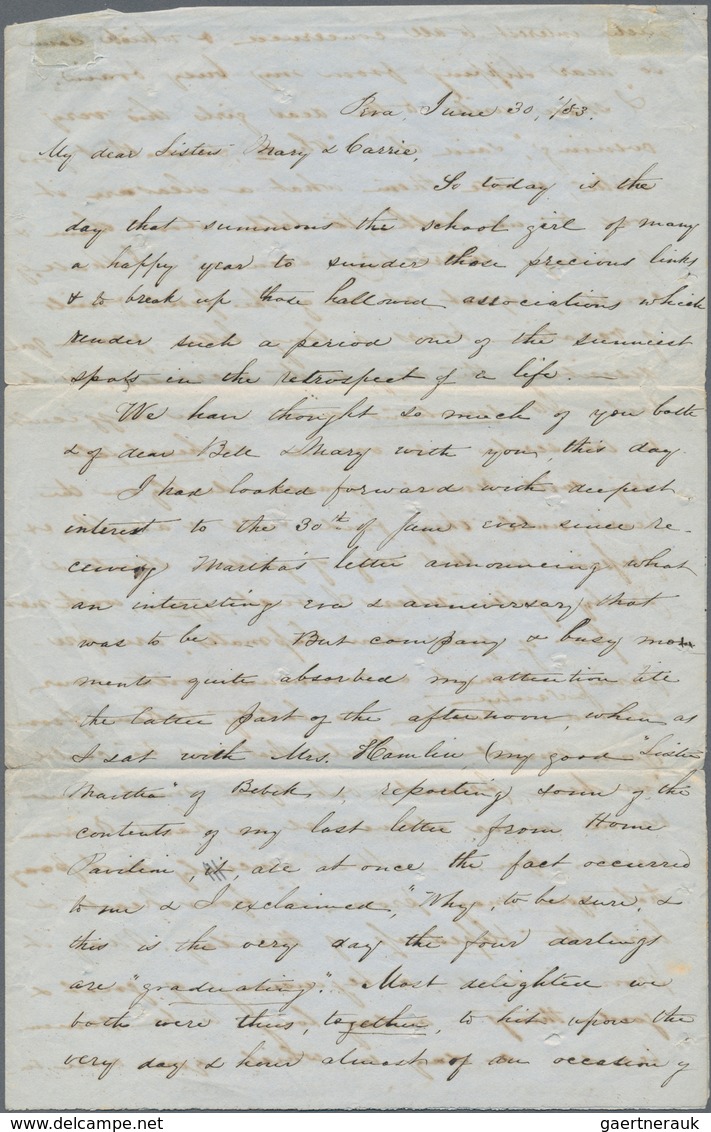 Pera, June 30, 1/53.
My dear Sisters Mary & Carrie,
So today is the
day that summons the school girl of many
a happy year to sunder those precious links,
& to break up those hallowed associations which
render such a period one of the sunniest
spots in the retrospect of a life. —
We have thought so much of you both
& of dear Bell & Mary with you, this day.
I had looked forward with deepest
interest to the 30th of June ever since re-
ceiving Martha's letter announcing what
an interesting era & anniversary that
was to be. But company & busy mo-
ments quite absorbed my attention till
the latter part of the afternoon, when as
I sat with Mrs. Hamlin, (my good "Sister
Martha" of Bebek), reporting some of the
contents of my last letter from Home
Pavilion, all at once the fact occurred
to me & I exclaimed, "Why, to be sure, &
this is the very day the four darlings
are "graduating". Most delighted we
both were thus, together, to hit upon the
very day & hour almost of an occasion of
gaertnerauk